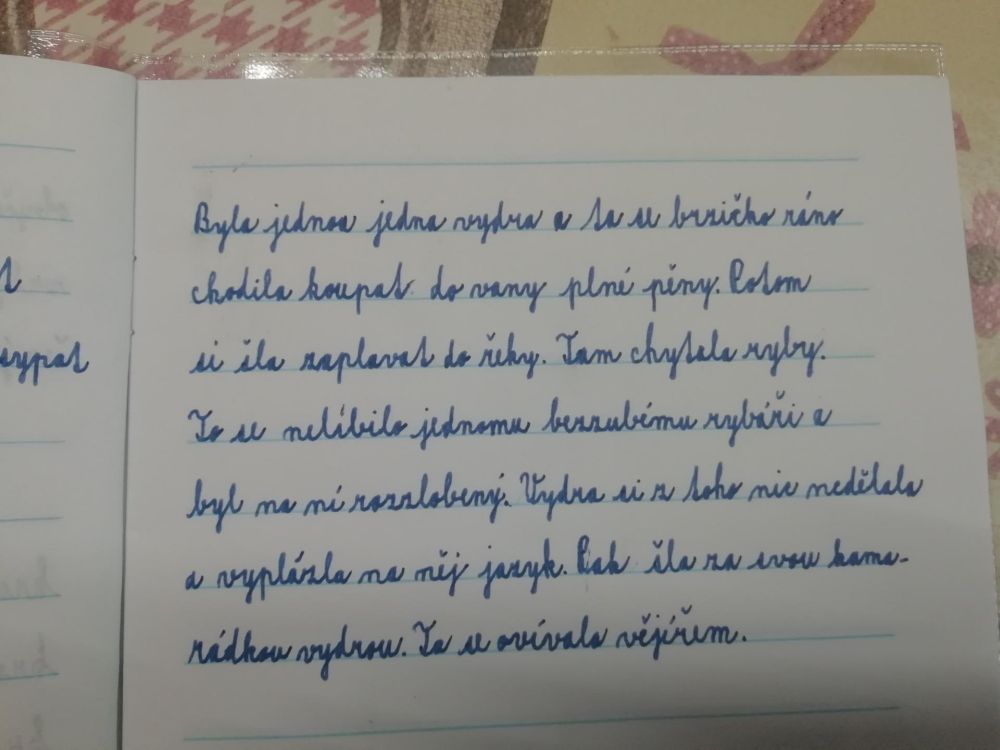 Byla jednoa jedna vydra a ta se brzičko ráno
t
chodila koupat do vany plné pěny. Potom
sypat
si šla zaplavat do řeky. Tam chytala ryby.
To se nelíbilo jednomu bezzubému rybáři a
byl na ní rozzlobený. Vydra si z toho nic nedělala
a vyplázla na něj jazyk. Pak šla za svou kama-
rádkou vydrou. Ta se ovívala vějířem.